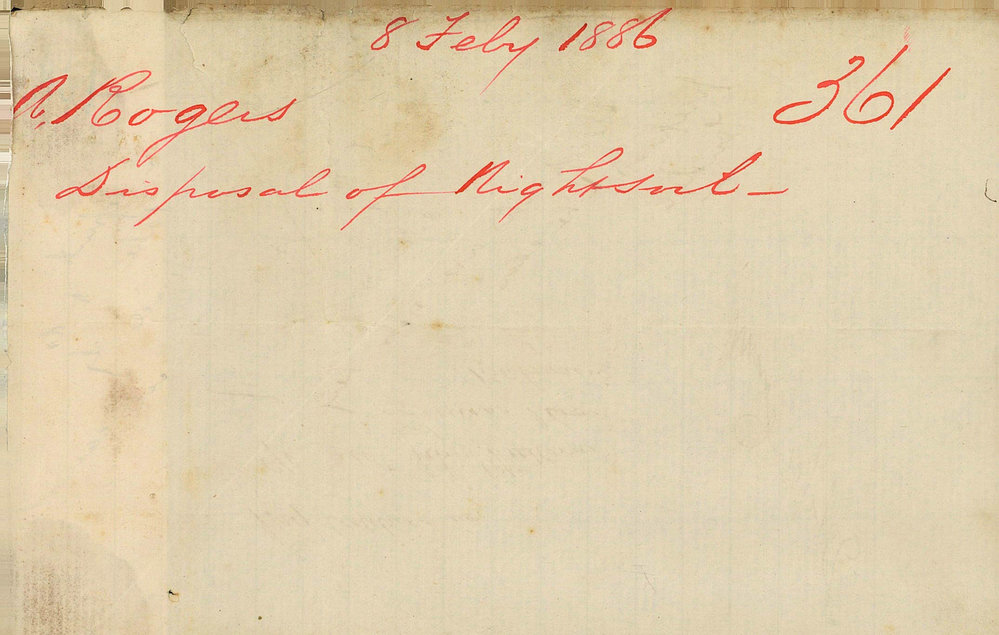 8 Feby 1886
361
A. Rogers
Disposal of Nightsoil —